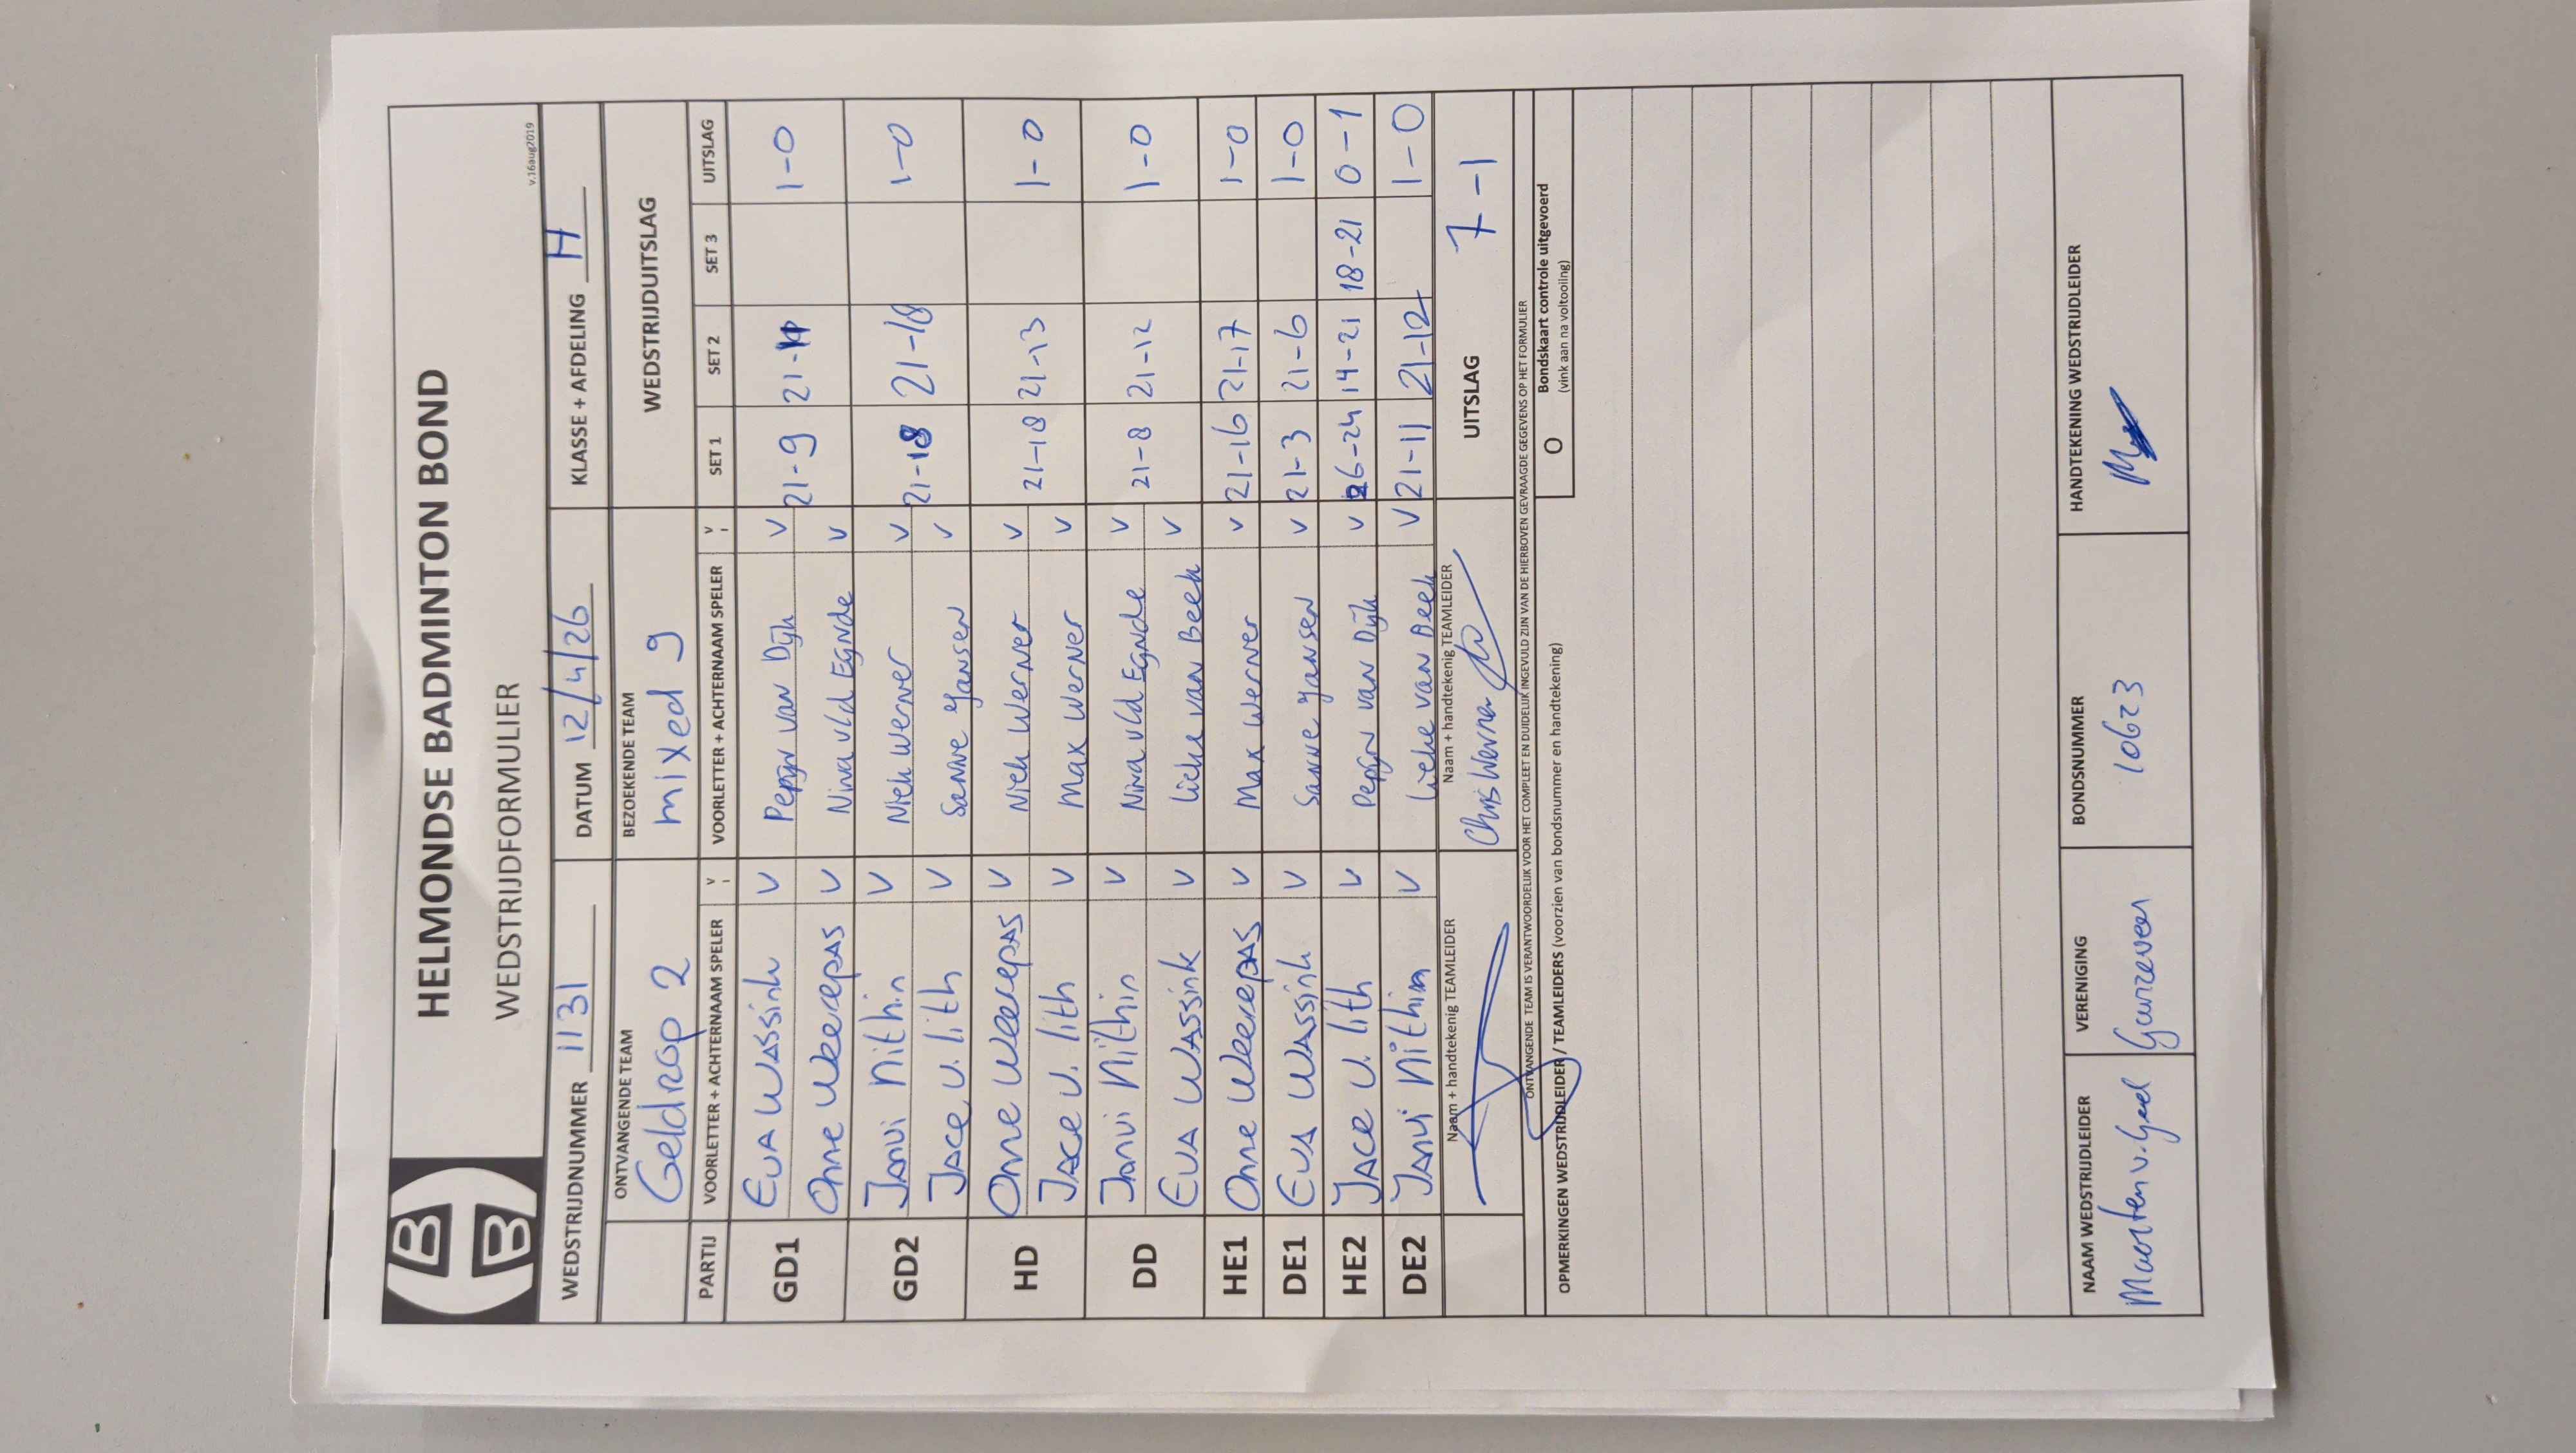 HELMONDSE BADMINTON BOND
WEDSTRIJDFORMULIER
v.16aug2019
WEDSTRIJDNUMMER 1131 DATUM 12/4/26 KLASSE + AFDELING H
ONTVANGENDE TEAM BEZOEKENDE TEAM WEDSTRIJDUITSLAG
Geldrop 2 mixed 9
PARTIJ VOORLETTER + ACHTERNAAM SPELER V VOORLETTER + ACHTERNAAM SPELER V SET 1 SET 2 SET 3 UITSLAG
GD1 Eva Wassink V Pepijn van Dijk V 21-9 21- 1-0
Onne Weerepas V Nina vld Egnde V
GD2 Janvi Nithin V Niek Werner V 21-18 21-18 1-0
Jace v. lith V Sanne Jansen V
HD Onne Weerepas V Niek Werner V 21-18 21-13 1-0
Jace v. lith V Max Werner V
DD Janvi Nithin V Nina vld Egnde V 21-8 21-12 1-0
Eva Wassink V Lieke van Beek V
HE1 Onne Weerepas V Max Werner V 21-16 21-17 1-0
DE1 Eva Wassink V Sanne Jansen V 21-3 21-6 1-0
HE2 Jace v. lith V Pepijn van Dijk V 26-24 14-21 18-21 0-1
DE2 Janvi Nithin V Lieke van Beek V 21-11 21-12 1-0
Naam + handtekenig TEAMLEIDER Naam + handtekenig TEAMLEIDER UITSLAG 7-1
Chris Werner
ONTVANGENDE TEAM IS VERANTWOORDELIJK VOOR HET COMPLEET EN DUIDELIJK INGEVULD ZIJN VAN DE HIERBOVEN GEVRAAGDE GEGEVENS OP HET FORMULIER
OPMERKINGEN WEDSTRIJDLEIDER / TEAMLEIDERS (voorzien van bondsnummer en handtekening) O Bondskaart controle uitgevoerd
(vink aan na voltooiing)
NAAM WEDSTRIJDLEIDER VERENIGING BONDSNUMMER HANDTEKENING WEDSTRIJDLEIDER
Maarten v. Geel 10623